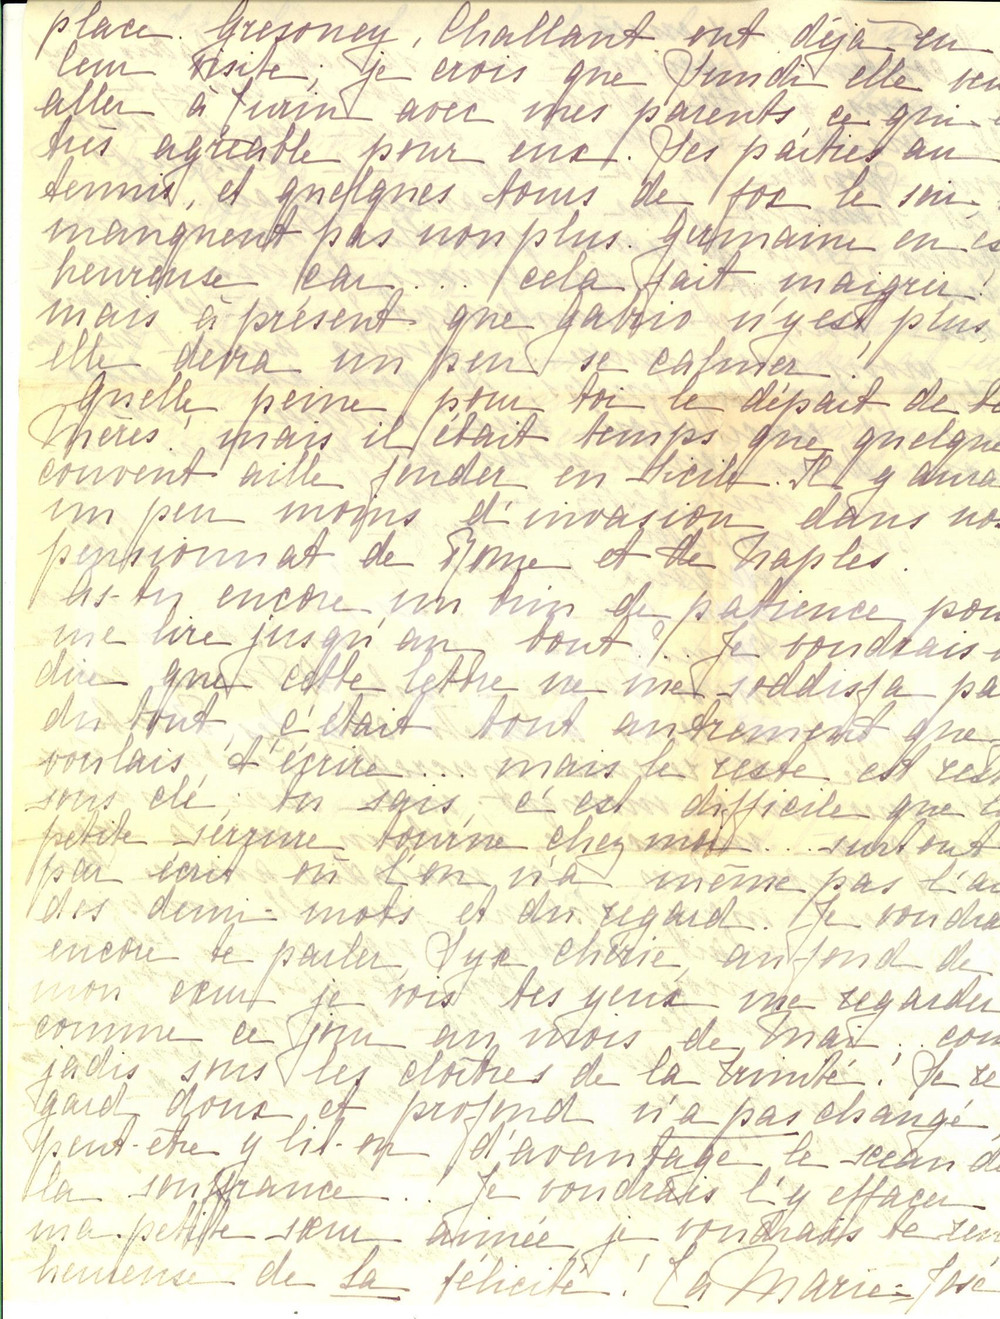 place. Gresoney, Challant ont déjà eu
leur visite; je crois que lundi elle veu
aller à Turin avec mes parents, ce qui e
très agréable pour eux. Les parties au
tennis, et quelques tours de fox le soir,
manquent pas non plus. Germaine en es
heureuse car ... cela fait maigrir!
mais à présent que Gabrio n'y est plus,
elle devra un peu se calmer!
Quelle peine pour toi le départ de te
Mères! mais il était temps que quelque
couvent aille fonder en Sicile. Il y aura
un peu moins d'invasion dans nos
pensionnat de Rome et de Naples.
As-tu encore un brin de patience pou
me lire jusqu'au bout? .. Je voudrais
dire que cette lettre ne me soddisfa pa
du tout, c'était tout autrement que
voulais t'écrire ... mais le reste est rest
sous clé: tu sais, c'est difficile que la
petite sérrure tourne chez moi ... surtout
par écrit où l'on n'a même pas l'ai
des demi-mots et du regard. Je voudra
encore te parler, Lyx chérie, au fond de
mon cœur je vois tes yeux me regarder
comme ce jour au mois de Mai .. com
jadis sous les cloîtres de la Trinité! Le re
gard doux et profond n'a pas changé,
peut-être y lit-on d'avantage le sceau de
la souffrance ... Je voudrais l'y effacer
ma petite sœur aimée, je voudrais te ren
heureuse de Sa félicité! Ta Marie-José